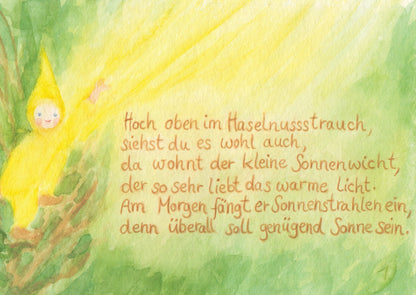 Hoch oben im Haselnussstrauch,
siehst du es wohl auch,
da wohnt der kleine Sonnenwicht,
der so sehr liebt das warme Licht.
Am Morgen fängt er Sonnenstrahlen ein,
denn überall soll genügend Sonne sein.